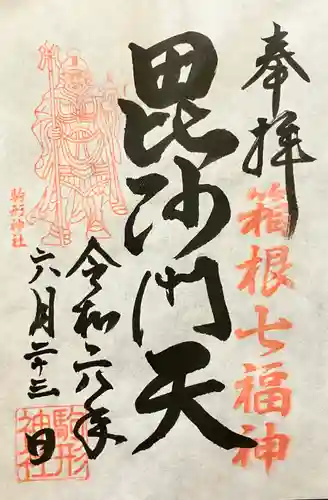 奉拝
箱根七福神
毘沙門天
令和六年
六月二十三日
駒形神社
駒形神社